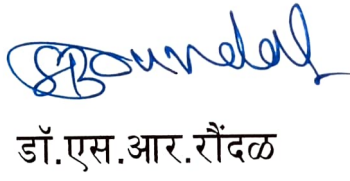 SRoundal
डॉ.एस.आर.रौंदळ